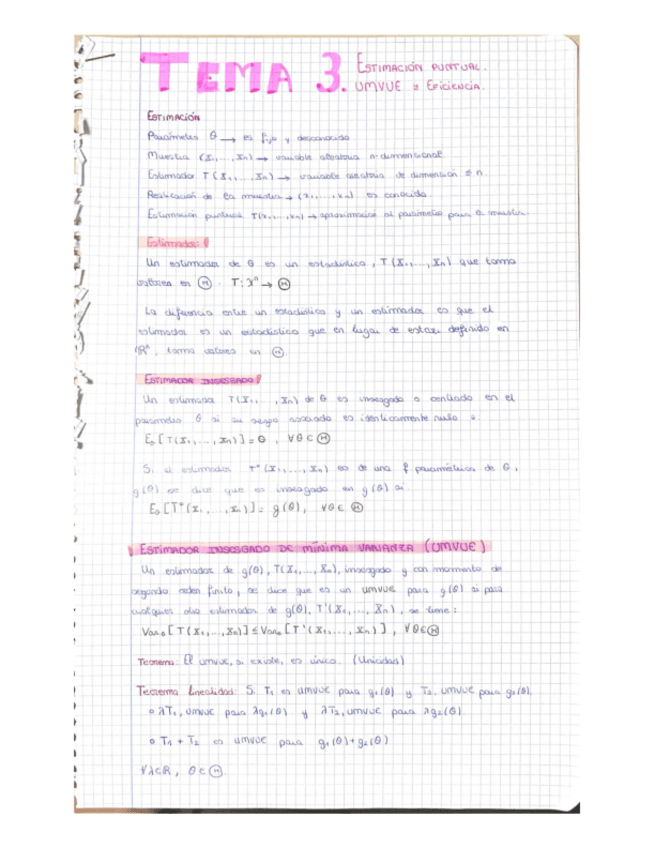 TEMA 3. ESTIMACIÓN PUNTUAL.
UMVUE y EFICIENCIA.
ESTIMACIÓN
Parámetro θ → es fijo y desconocido
Muestra (X₁,...,Xn) → variable aleatoria n-dimensional.
Estimador T(X₁,...,Xn) → variable aleatoria de dimensión ≤ n.
Realización de la muestra → (x₁,...,xn) es conocida.
Estimación puntual T(x₁,...,xn) → aproximación al parámetro para la muestra.
Estimador:
Un estimador de θ es un estadístico, T(X₁,...,Xn) que toma
valores en Ⓗ. T: χⁿ → Ⓗ
La diferencia entre un estadístico y un estimador es que el
estimador es un estadístico que en lugar de estar definido en
ℝⁿ, toma valores en Ⓗ.
ESTIMADOR INSESGADO
Un estimador T(X₁, , Xn) de θ es insesgado o centrado en el
parámetro θ si su sesgo asociado es idénticamente nulo :
Eθ[T(X₁,...,Xn)] = θ, ∀θ∈Ⓗ
Si el estimador T*(X₁,...,Xn) es de una f paramétrica de θ,
g(θ) se dice que es insesgado en g(θ) si
Eθ[T*(X₁,...,Xn)] = g(θ), ∀θ∈ Ⓗ
ESTIMADOR INSESGADO DE MÍNIMA VARIANZA (UMVUE)
Un estimador de g(θ), T(X₁,...,Xn), insesgado y con momento de
segundo orden finito, se dice que es un UMVUE para g(θ) si para
cualquier otro estimador de g(θ), T'(X₁,...,Xn), se tiene:
Varθ[T(X₁,...,Xn)] ≤ Varθ[T'(X₁,...,Xn)], ∀θ∈Ⓗ
Teorema: El UMVUE, si existe, es único. (Unicidad)
Teorema Linealidad: Si T₁ es UMVUE para g₁(θ) y T₂ UMVUE para g₂(θ).
∘ λT₁, UMVUE para λg₁(θ) y λT₂, UMVUE para λg₂(θ)
∘ T₁ + T₂ es UMVUE para g₁(θ)+g₂(θ)
∀λ∈ℝ, θ∈Ⓗ.